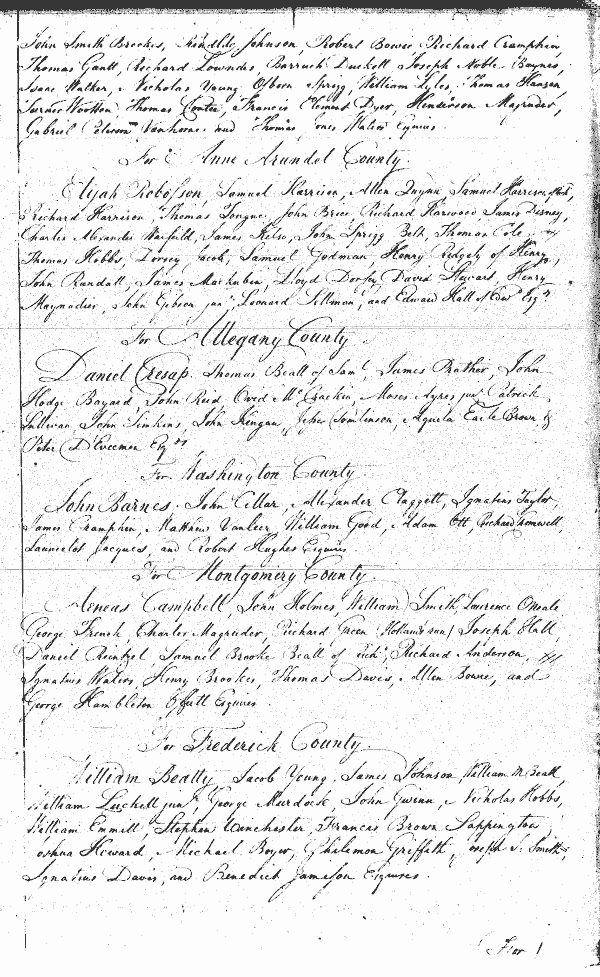 John Smith Brookes, Johnson, Robert Bowie Richard Cramphin,
Thomas Gantt, Richard Lowndes, Barruch Duckett Joseph Noble Baynes,
Isaac Walker, Nicholas Young Osborn Sprigg, William Lyles, Thomas Hanson,
Turner Wootton, Thomas Contee, Francis Clement Dyer, Henderson Magruder,
Gabriel Vanhorne and Thomas Jones Waters Esquires.
For Anne Arundel County.
Elijah Robosson, Samuel Harrison, Allen Quynn Samuel Harrison
Richard Harrison, Thomas Tongue, John Brice, Richard Harwood James Disney,
Charles Alexander Warfield, James Kelso, John Sprigg Belt, Thomas Cole
Thomas Hobbs, Dorsey Jacob, Samuel Godman, Henry Ridgely of Henry,
John Randall, James Mackubin, Lloyd Dorsey, David Steuart, Henry
Maynadier, John Gibson junr, Leonard Sellman, and Edward Hall of Edwd Esqrs
For Allegany County
Daniel Cresap, Thomas Beall of Saml, James Prather, John
Hodge Bayard, John Reid Ovid McCrackin, Moses Ayres junr Patrick
Sullivan John Simkins, John Jesse Tomlinson, Aquela Earle Brown &
Peter Esqrs
For Washington County
John Barnes, John Cellar, Alexander Claggett, Ignatius Taylor,
James Cramphin, Matthias Vanlier William Good, Adam Ott, Richard Cromwell,
Launcelot Jacques, and Robert Hughes Esquires
For Montgomery County.
Aeneas Campbell, John Holmes, William Smith, Laurence ONeale
George French Charles Magruder, Richard Green (Hollands run) Joseph Hall
Daniel Reintzel Samuel Brooke Beall of Richd, Richard Anderson,
Ignatius Waters, Henry Brookes, Thomas Davis, Allen Bowie, and
George Hambleton Offutt Esquires
For Frederick County
William Beatty, Jacob Young, James Johnson, William M Beall,
William Luckett junr George Murdock, John Gwinn, Nicholas Hobbs,
William Emmitt, Stephen Winchester, Francis Brown Sappington
Joshua Howard, Michael Boyer, Philemon Griffith, Joseph S. Smith,
Ignatius Davis, and Benedict Jameson Esquires.
For